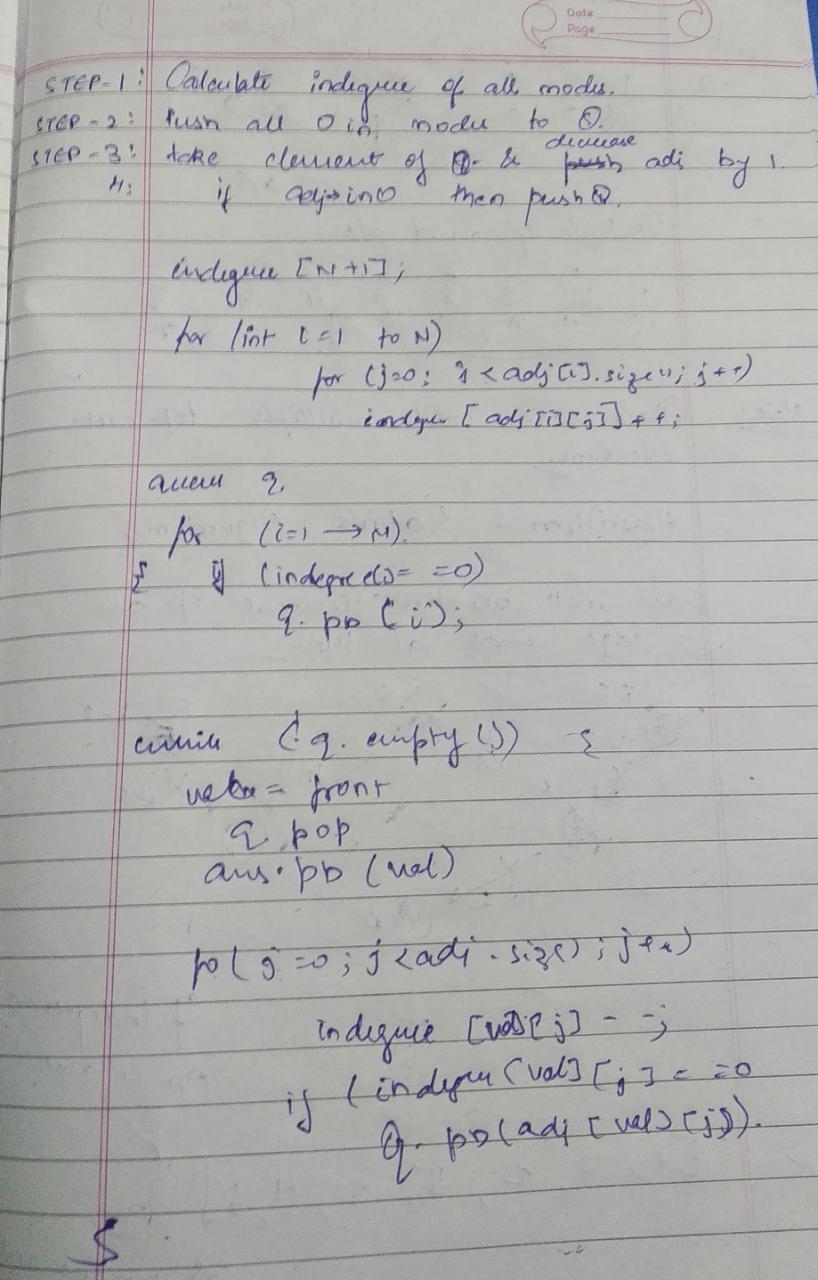 Date
Page
STEP-1: Calculate indegree of all nodes.
STEP-2: Push all 0 in nodes to Q.
STEP-3: take element of Q. & decrease adj by 1.
4: if adj→in0 then push Q.
indegree [N+1];
for (int i=1 to N)
for (j=0; j < adj[i].size(); j++)
indegree [adj[i][j]]++;
queue q
for (i=1 → N).
{ if (indegree(i)==0)
q.pb(i);
while (!q.empty()) {
value = front
q.pop
ans.pb(val)
for(j=0; j<adj.size(); j++)
indegree [val][j]--;
if (indegree[val][j]==0
Q.pb(adj[val][j]).
}